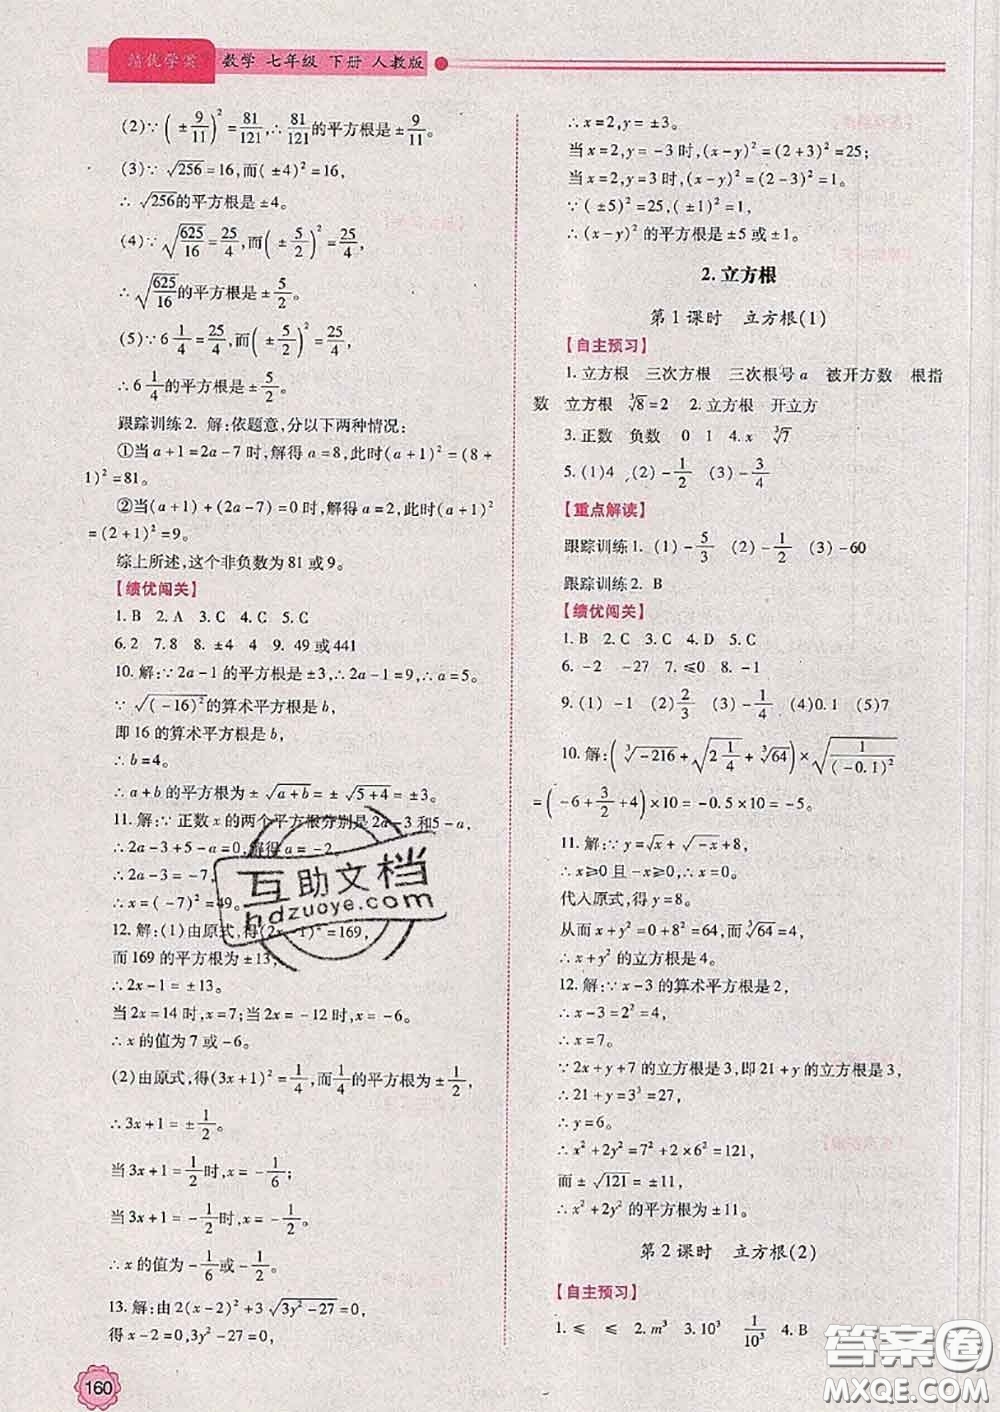 绩优学案 数学 七年级 下册 人教版
(2)∵(±9/11)²=81/121,∴81/121的平方根是±9/11。
(3)∵√256=16,而(±4)²=16,
∴√256的平方根是±4。
(4)∵√(625/16)=25/4,而(±5/2)²=25/4,
∴√(625/16)的平方根是±5/2。
(5)∵6 1/4=25/4,而(±5/2)²=25/4,
∴6 1/4的平方根是±5/2。
跟踪训练2. 解:依题意,分以下两种情况:
①当a+1=2a-7时,解得a=8,此时(a+1)²=(8+
1)²=81。
②当(a+1)+(2a-7)=0时,解得a=2,此时(a+1)²
=(2+1)²=9。
综上所述,这个非负数为81或9。
【绩优闯关】
1. B 2. A 3. C 4. C 5. C
6. 2 7. 8 8. ±4 9. 49或441
10. 解:∵2a-1的平方根是±3,∴2a-1=9,∴a=5。
∵√(-16)²的算术平方根是b,
即16的算术平方根是b,
∴b=4。
∴a+b的平方根为±√(a+b)=±√(5+4)=±3。
11. 解:∵正数x的两个平方根分别是2a-3和5-a,
∴2a-3+5-a=0,解得a=-2。
∴2a-3=-7。
∴x=(-7)²=49。
12. 解:(1)由原式,得(2x-1)²=169,
而169的平方根为±13,
∴2x-1=±13。
当2x=14时,x=7;当2x=-12时,x=-6。
∴x的值为7或-6。
(2)由原式,得(3x+1)²=1/4,而1/4的平方根为±1/2,
∴3x+1=±1/2。
当3x+1=1/2时,x=-1/6;
当3x+1=-1/2时,x=-1/2。
∴x的值为-1/6或-1/2。
13. 解:由2(x-2)²+3√(3y²-27)=0,
得x-2=0,3y²-27=0,
160
∴x=2,y=±3。
当x=2,y=-3时,(x-y)²=(2+3)²=25;
当x=2,y=3时,(x-y)²=(2-3)²=1。
∵(±5)²=25,(±1)²=1,
∴(x-y)²的平方根是±5或±1。
2. 立方根
第1课时 立方根(1)
【自主预习】
1. 立方根 三次方根 三次根号a 被开方数 根指
数 立方根 ³√8=2 2. 立方根 开立方
3. 正数 负数 0 1 4. x ³√7
5. (1)4 (2)-1/2 (3)-3/4
【重点解读】
跟踪训练1. (1)-5/3 (2)-1/2 (3)-60
跟踪训练2. B
【绩优闯关】
1. B 2. C 3. C 4. D 5. C
6. -2 -27 7. ≤0 8. -1
9. (1)-1 (2)2/3 (3)-1/4 (4)0.1 (5)7
10. 解:(³√-216+√(2 1/4)+³√64)×√(1/(-0.1)²)
=(-6+3/2+4)×10=-0.5×10=-5。
11. 解:∵y=√x+√-x+8,
∴x≥0且-x≥0,∴x=0。
代入原式,得y=8。
从而x+y²=0+8²=64,而³√64=4,
∴x+y²的立方根是4。
12. 解:∵x-3的算术平方根是2,
∴x-3=2²=4,
∴x=7。
∵2x+y+7的立方根是3,即21+y的立方根是3,
∴21+y=3³=27,
∴y=6。
∴x²+2y²=7²+2×6²=121,
而±√121=±11,
∴x²+2y²的平方根为±11。
第2课时 立方根(2)
【自主预习】
1. ≤ ≤ 2. m³ 3. 10³ 1/10³ 4. B
互助文档
hdzuoye.com
答案圈
MXQE.COM